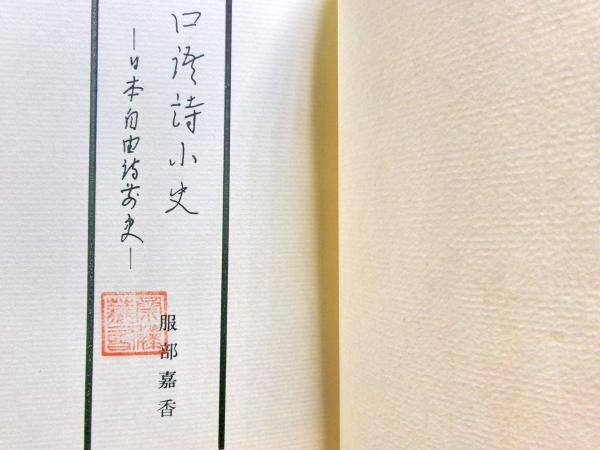 口語詩小史
―日本自由詩前史―
服部嘉香